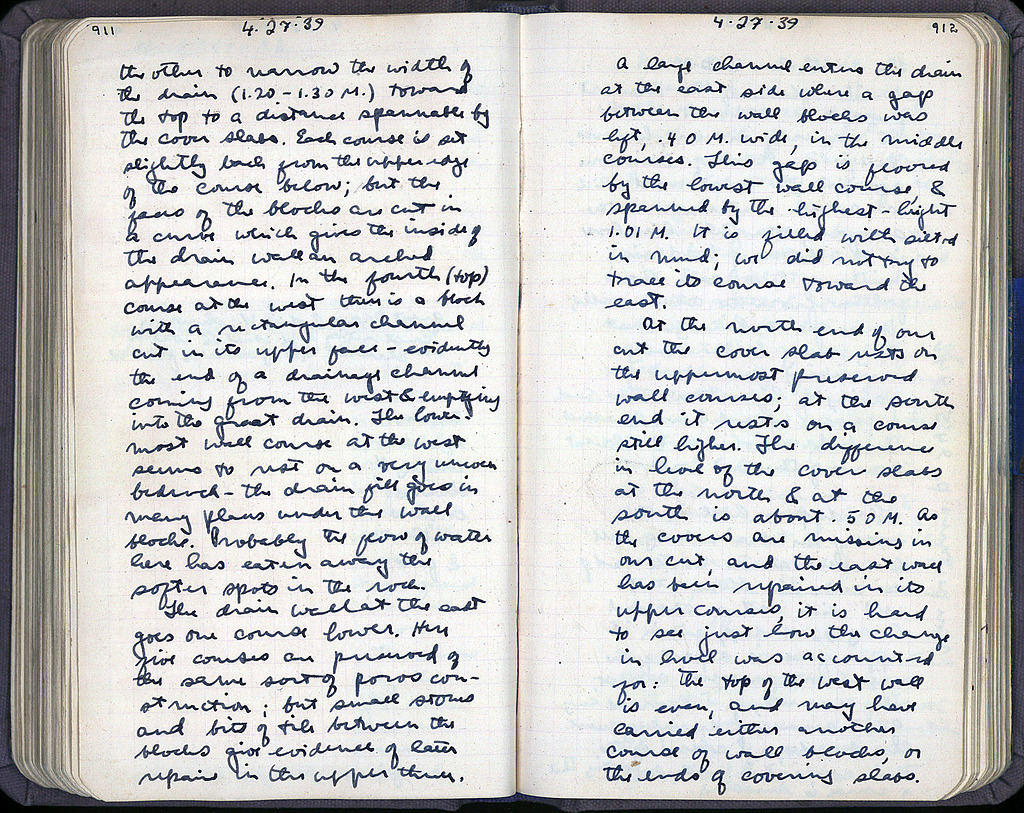 911
4·27·39
the other to narrow the width of
the drain (1.20 – 1.30 M.) toward
the top to a distance spannable by
the cover slabs. Each course is set
slightly back from the upper edge
of the course below; but the
faces of the blocks are cut in
a curve which gives the inside of
the drain wall an arched
appearance. In the fourth (top)
course at the west there is a block
with a rectangular channel
cut in its upper face – evidently
the end of a drainage channel
coming from the west & emptying
into the great drain. The lower-
most wall course at the west
seems to rest on a very uneven
bedrock – the drain fill goes in
many places under the wall
blocks. Probably the flow of water
here has eaten away the
softer spots in the rock.
The drain wall at the east
goes one course lower. Here
five courses are preserved of
the same sort of poros con-
struction; but small stones
and bits of tile between the
blocks give evidence of later
repairs in the upper three.
4·27·39
912
A large channel enters the drain
at the east side where a gap
between the wall blocks was
left, .40 M. wide, in the middle
courses. This gap is floored
by the lowest wall course, &
spanned by the highest – height
1.01 M. It is filled with silted
in mud; we did not try to
trace its course toward the
east.
At the north end of our
cut the cover slab rests on
the uppermost preserved
wall courses; at the south
end it rests on a course
still higher. The difference
in level of the cover slabs
at the north & at the
south is about .50 M. As
the covers are missing in
our cut, and the east wall
has been repaired in its
upper courses, it is hard
to see just how the change
in level was accounted
for: the top of the west wall
is even, and may have
carried either another
course of wall blocks, or
the ends of covering slabs.